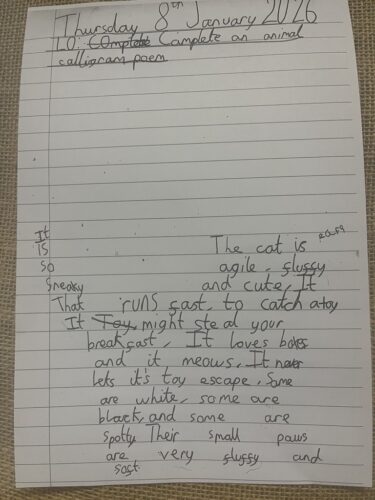 Thursday 8th January 2026
LO: Complete Complete an animal
calligram poem
It
is The cat is
so agile, fluffy
sneaky and cute, It
That runs fast, to catch a toy
It Toy, might steal your
breakfast, It loves boxes
and it meows, It never
lets it's toy escape, Some
are white, some are
black, and some are
spotty Their small paws
are very fluffy and
soft